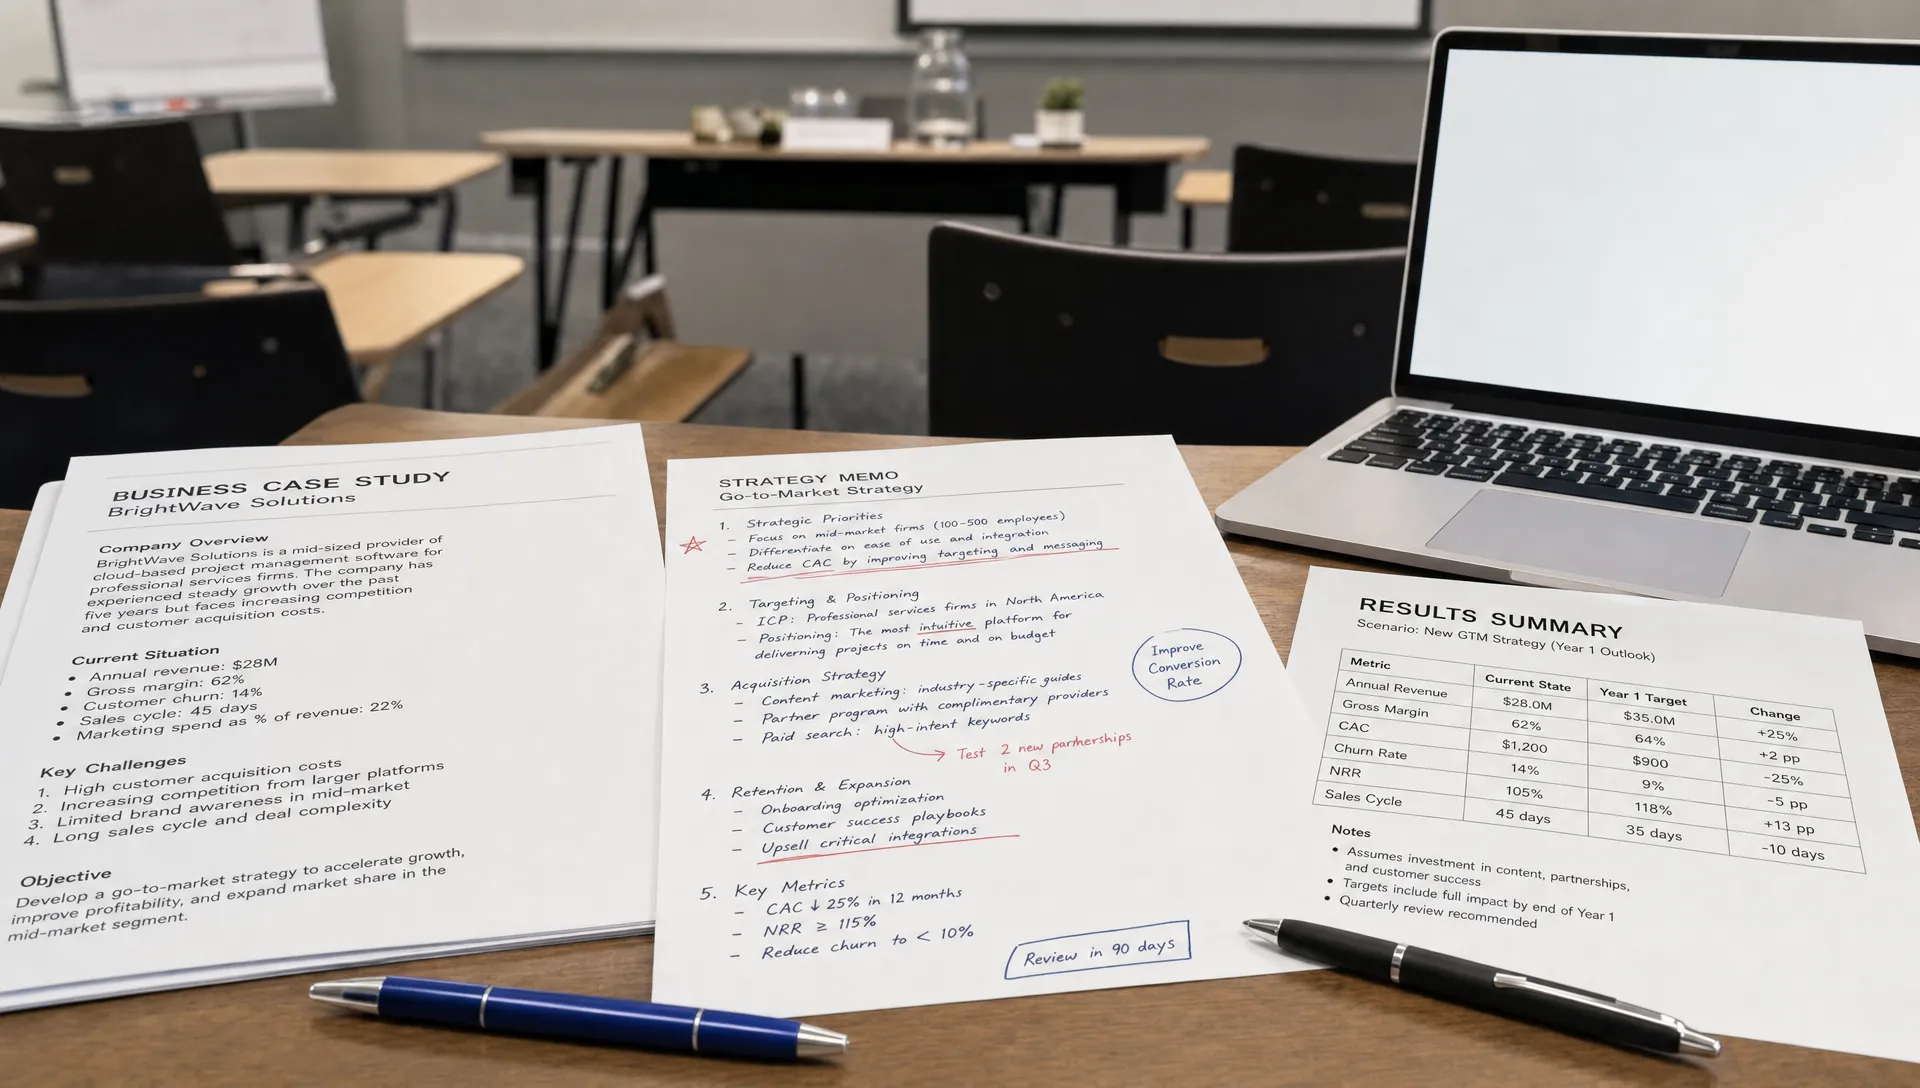 BUSINESS CASE STUDY
BrightWave Solutions
Company Overview
BrightWave Solutions is a mid-sized provider of
cloud-based project management software for
professional services firms. The company has
experienced steady growth over the past
five years but faces increasing competition
and customer acquisition costs.
Current Situation
• Annual revenue: $28M
• Gross margin: 62%
• Customer churn: 14%
• Sales cycle: 45 days
• Marketing spend as % of revenue: 22%
Key Challenges
1. High customer acquisition costs
2. Increasing competition from larger platforms
3. Limited brand awareness in mid-market
4. Long sales cycle and deal complexity
Objective
Develop a go-to-market strategy to accelerate growth,
improve profitability, and expand market share in the
mid-market segment.
STRATEGY MEMO
Go-to-Market Strategy
1. Strategic Priorities
– Focus on mid-market firms (100-500 employees)
– Differentiate on ease of use and integration
– Reduce CAC by improving targeting and messaging
2. Targeting & Positioning
– ICP: Professional services firms in North America
– Positioning: The most intuitive platform for
deliverning projects on time and on budget
Improve
Conversion
Rate
3. Acquisition Strategy
– Content marketing: industry-specific guides
– Partner program with complimentary providers
– Paid search: high-intent keywords
Test 2 new partnerships
in Q3
4. Retention & Expansion
– Onboarding optimization
– Customer success playbooks
– Upsell critical integrations
5. Key Metrics
– CAC ↓ 25% in 12 months
– NRR ≥ 115%
– Reduce churn to < 10%
Review in 90 days
RESULTS SUMMARY
Scenario: New GTM Strategy (Year 1 Outlook)
Metric Current State Year 1 Target Change
Annual Revenue $28.0M $35.0M +25%
Gross Margin 62% 64% +2 pp
CAC $1,200 $900 -25%
Churn Rate 14% 9% -5 pp
NRR 105% 118% +13 pp
Sales Cycle 45 days 35 days -10 days
Notes
• Assumes investment in content, partnerships,
and customer success
• Targets include full impact by end of Year 1
• Quarterly review recommended